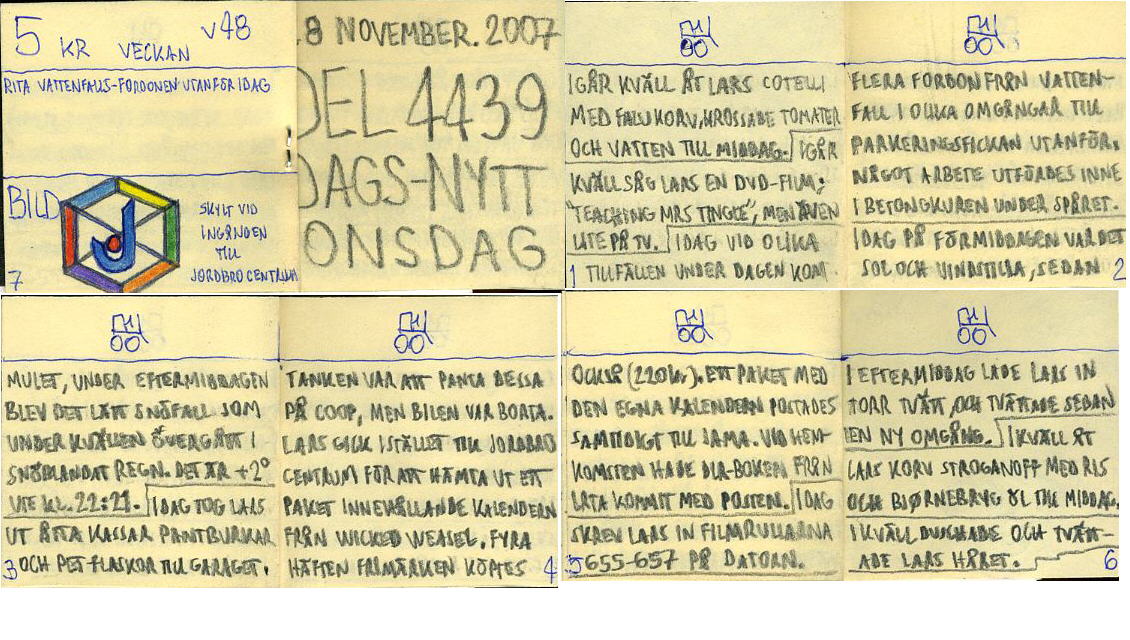 5 KR VECKAN V48
RITA VATTENFALLS-FORDONEN UTANFÖR IDAG
BILD
SKYLT VID
INGÅNGEN
TILL
JORDBRO CENTRUM
7
8 NOVEMBER. 2007
DEL 4439
DAGS-NYTT
ONSDAG
IGÅR KVÄLL ÅT LARS COTELLI
MED FALUKORV, KROSSADE TOMATER
OCH VATTEN TILL MIDDAG. IGÅR
KVÄLL SÅG LARS EN DVD-FILM;
"TEACHING MRS TINGLE", MEN ÄVEN
LITE PÅ TV. IDAG VID OLIKA
1 TILLFÄLLEN UNDER DAGEN KOM
FLERA FORDON FRÅN VATTEN-
FALL I OLIKA OMGÅNGAR TILL
PARKERINGSFICKAN UTANFÖR.
NÅGOT ARBETE UTFÖRDES INNE
I BETONGKUREN UNDER SPÅRET.
IDAG PÅ FÖRMIDDAGEN VAR DET
SOL OCH VINDSTILLA, SEDAN 2
MULET, UNDER EFTERMIDDAGEN
BLEV DET LÄTT SNÖFALL SOM
UNDER KVÄLLEN ÖVERGÅTT I
SNÖBLANDAT REGN. DET ÄR +2°
UTE KL. 22:21. IDAG TOG LARS
UT ÅTTA KASSAR PANTBURKAR
3 OCH PET-FLASKOR TILL GARAGET.
TANKEN VAR ATT PANTA DESSA
PÅ COOP, MEN BILEN VAR BORTA.
LARS GICK ISTÄLLET TILL JORDBRO
CENTRUM FÖR ATT HÄMTA UT ETT
PAKET INNEHÅLLANDE KALENDERN
FRÅN WICKED WEASEL. FYRA
HÄFTEN FRIMÄRKEN KÖPTES 4
OCKSÅ (220 kr). ETT PAKET MED
DEN EGNA KALENDERN POSTADES
SAMTIDIGT TILL JAMA. VID HEM-
KOMSTEN HADE DLR-BOKEN FRÅN
LATA KOMMIT MED POSTEN. IDAG
SKREV LARS IN FILMRULLARNA
5 655-657 PÅ DATORN.
I EFTERMIDDAG LADE LARS IN
TORR TVÄTT, OCH TVÄTTADE SEDAN
EN NY OMGÅNG. IKVÄLL ÅT
LARS KORV STROGANOFF MED RIS
OCH BJØRNEBRYG ÖL TILL MIDDAG.
IKVÄLL DUSCHADE OCH TVÄTT-
ADE LARS HÅRET. 6